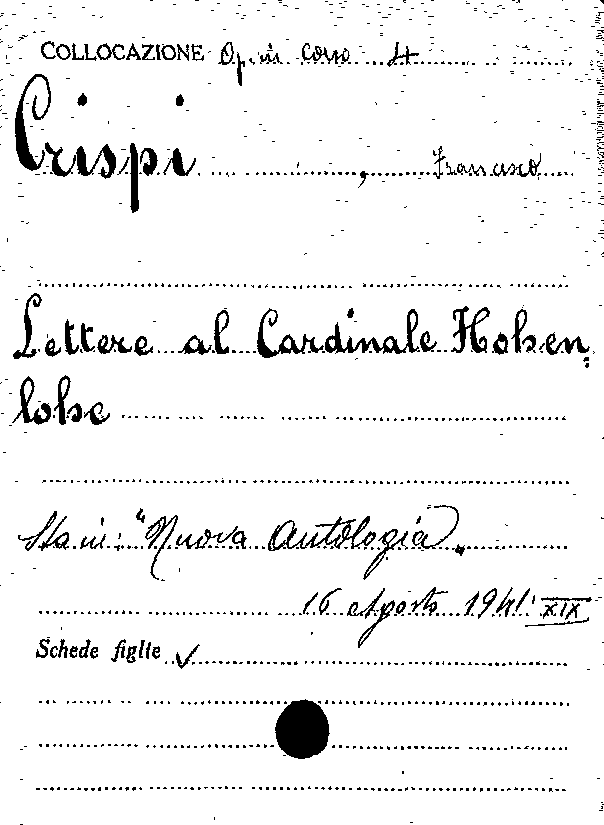 COLLOCAZIONE Op. in Corso 4
Crispi , Francesco
Lettere al Cardinale Hohen=
lohe
Sta in: "Nuova Antologia„
16 Agosto 1941: XIX
Schede figlie ✓